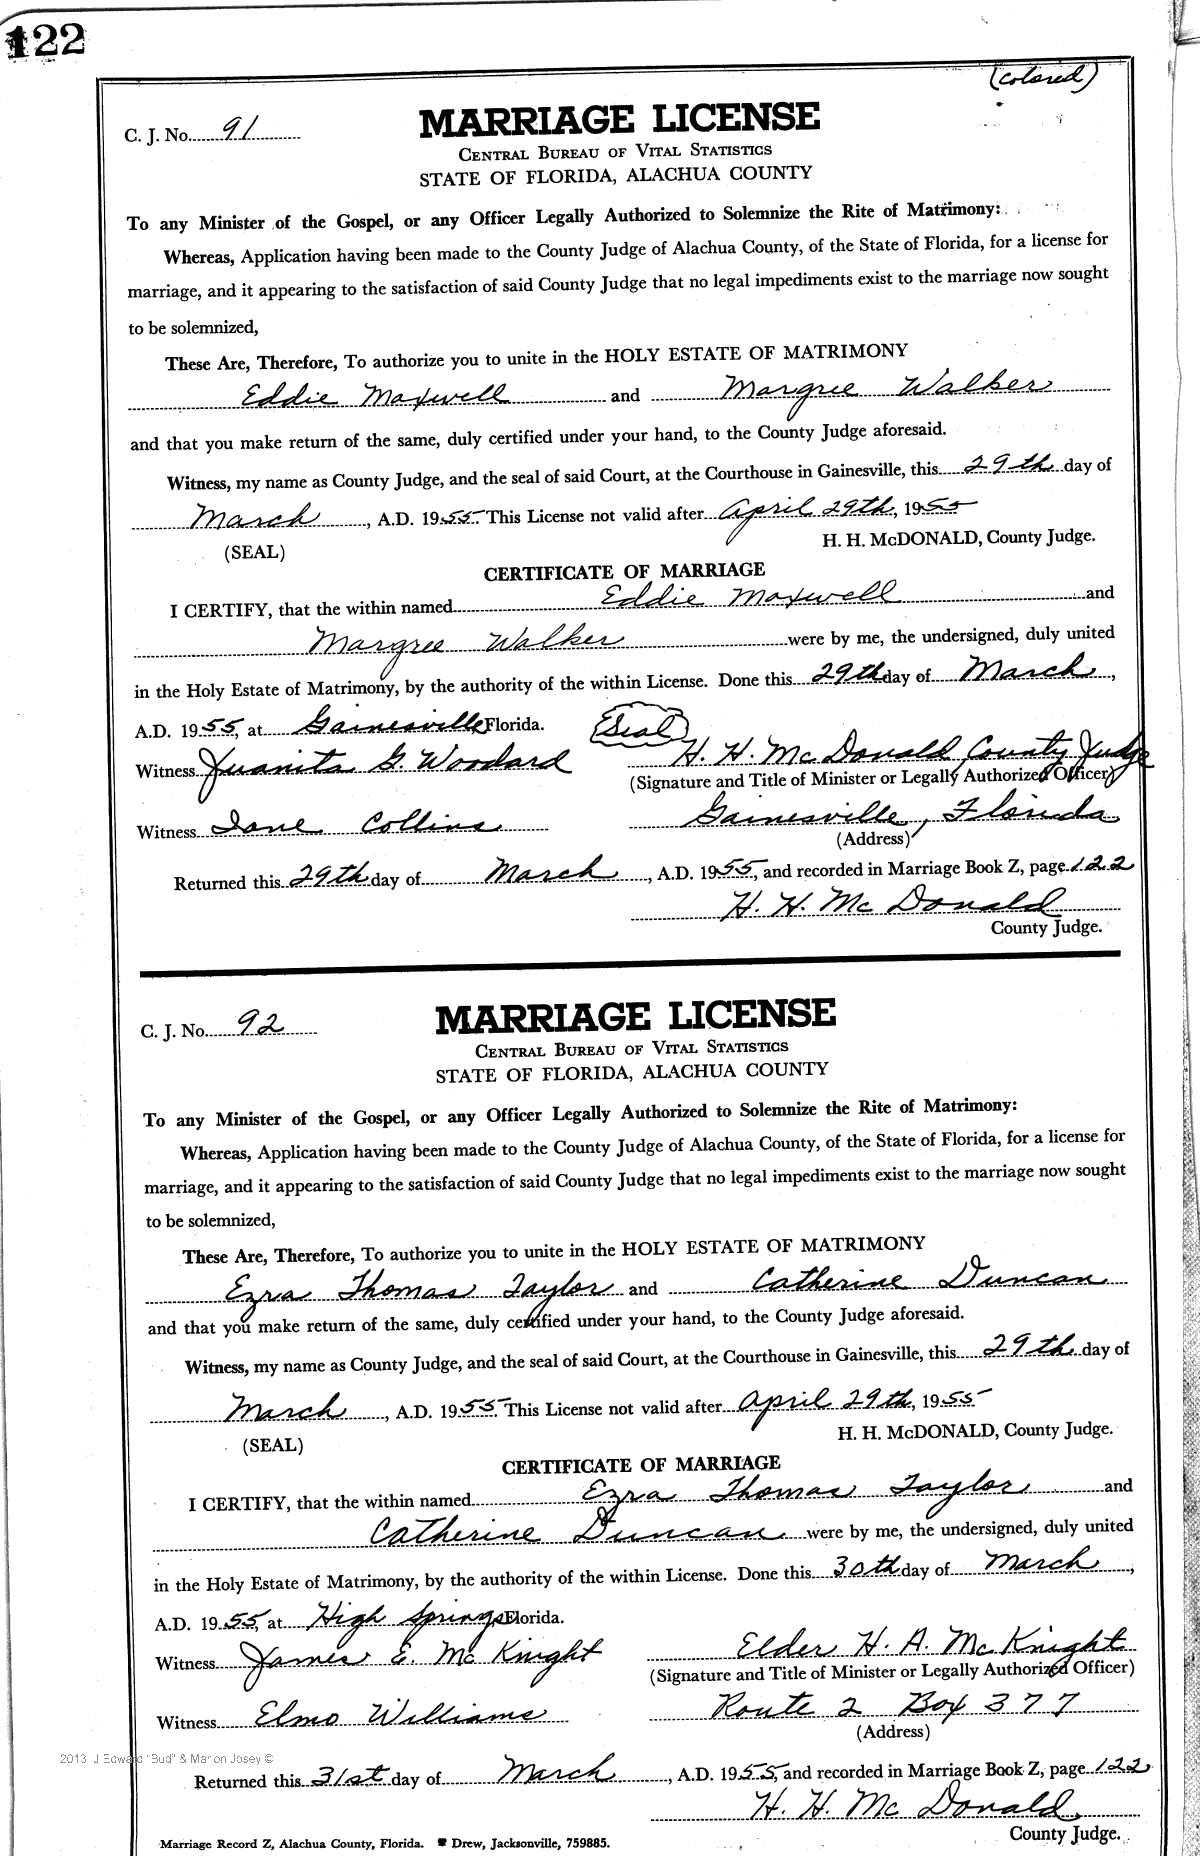 122
(colored)
C. J. No. 91
MARRIAGE LICENSE
CENTRAL BUREAU OF VITAL STATISTICS
STATE OF FLORIDA, ALACHUA COUNTY
To any Minister of the Gospel, or any Officer Legally Authorized to Solemnize the Rite of Matrimony:
Whereas, Application having been made to the County Judge of Alachua County, of the State of Florida, for a license for
marriage, and it appearing to the satisfaction of said County Judge that no legal impediments exist to the marriage now sought
to be solemnized,
These Are, Therefore, To authorize you to unite in the HOLY ESTATE OF MATRIMONY
Eddie Maxwell and Margree Walker
and that you make return of the same, duly certified under your hand, to the County Judge aforesaid.
Witness, my name as County Judge, and the seal of said Court, at the Courthouse in Gainesville, this 29th day of
March, A.D. 1955. This License not valid after April 29th, 1955
(SEAL) H. H. McDONALD, County Judge.
CERTIFICATE OF MARRIAGE
I CERTIFY, that the within named Eddie Maxwell and
Margree Walker were by me, the undersigned, duly united
in the Holy Estate of Matrimony, by the authority of the within License. Done this 29th day of March,
A.D. 1955, at Gainesville Florida. (Seal)
Witness Juanita G. Woodard H. H. McDonald County Judge
(Signature and Title of Minister or Legally Authorized Officer)
Witness Jane Collins Gainesville, Florida
(Address)
Returned this 29th day of March, A.D. 1955, and recorded in Marriage Book Z, page 122
H. H. McDonald
County Judge.
C. J. No. 92
MARRIAGE LICENSE
CENTRAL BUREAU OF VITAL STATISTICS
STATE OF FLORIDA, ALACHUA COUNTY
To any Minister of the Gospel, or any Officer Legally Authorized to Solemnize the Rite of Matrimony:
Whereas, Application having been made to the County Judge of Alachua County, of the State of Florida, for a license for
marriage, and it appearing to the satisfaction of said County Judge that no legal impediments exist to the marriage now sought
to be solemnized,
These Are, Therefore, To authorize you to unite in the HOLY ESTATE OF MATRIMONY
Ezra Thomas Taylor and Catherine Duncan
and that you make return of the same, duly certified under your hand, to the County Judge aforesaid.
Witness, my name as County Judge, and the seal of said Court, at the Courthouse in Gainesville, this 29th day of
March, A.D. 1955. This License not valid after April 29th, 1955
(SEAL) H. H. McDONALD, County Judge.
CERTIFICATE OF MARRIAGE
I CERTIFY, that the within named Ezra Thomas Taylor and
Catherine Duncan were by me, the undersigned, duly united
in the Holy Estate of Matrimony, by the authority of the within License. Done this 30th day of March,
A.D. 1955, at High Springs Florida.
Witness James E. McKnight Elder H. A. McKnight
(Signature and Title of Minister or Legally Authorized Officer)
Witness Elmo Williams Route 2 Box 377
(Address)
2013 J Edward "Bud" & Marion Josey ©
Returned this 31st day of March, A.D. 1955, and recorded in Marriage Book Z, page 122
H. H. McDonald
County Judge.
Marriage Record Z, Alachua County, Florida. Drew, Jacksonville, 759885.